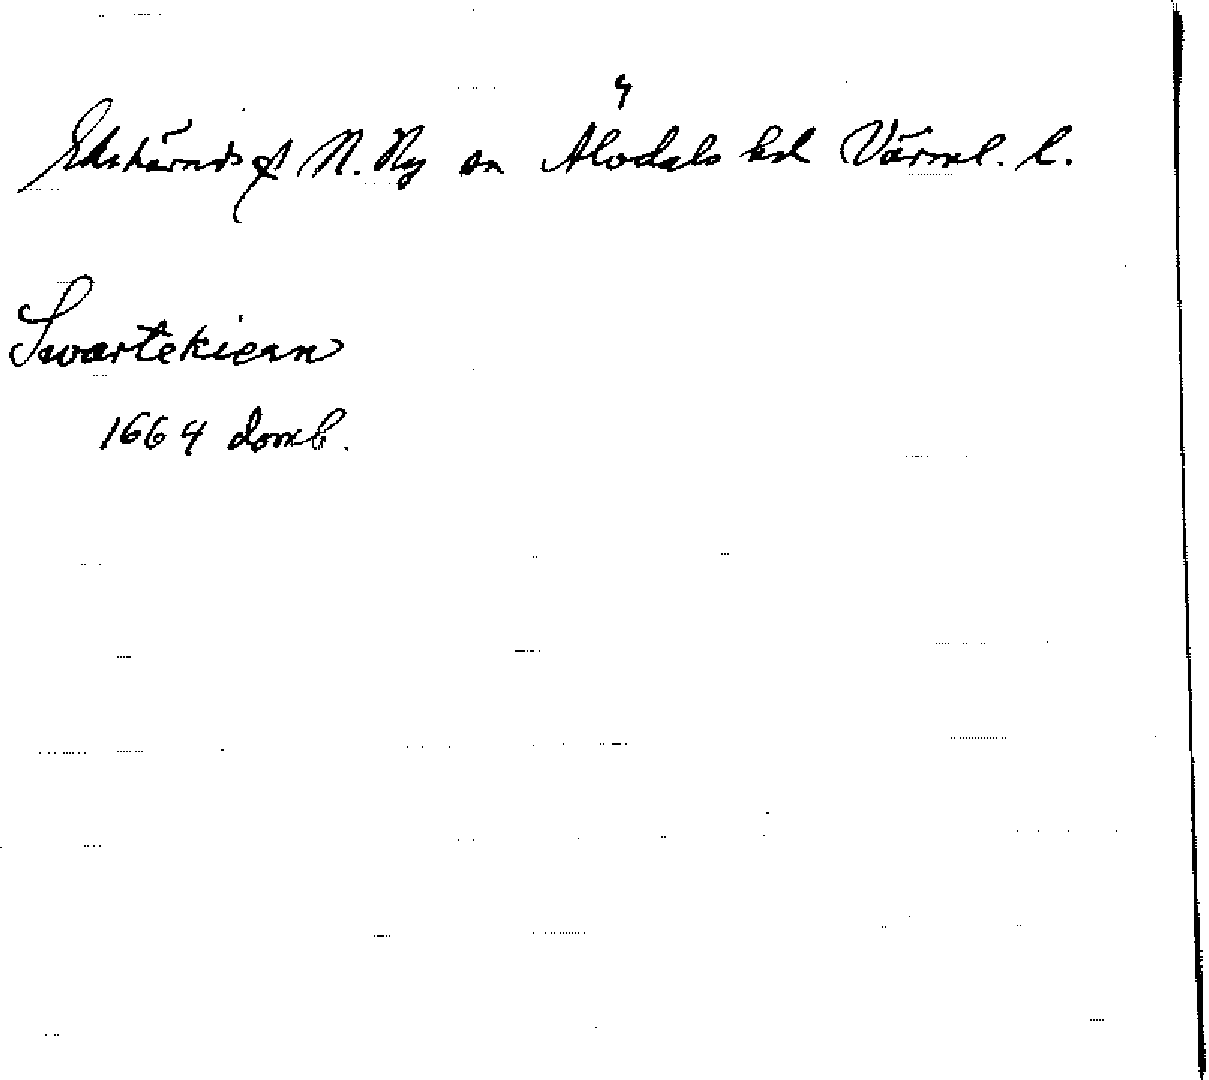 4
Ekshärads sf N. Ny sn Älvdals hd Värml. l.
Swartekiern
1664 domb.